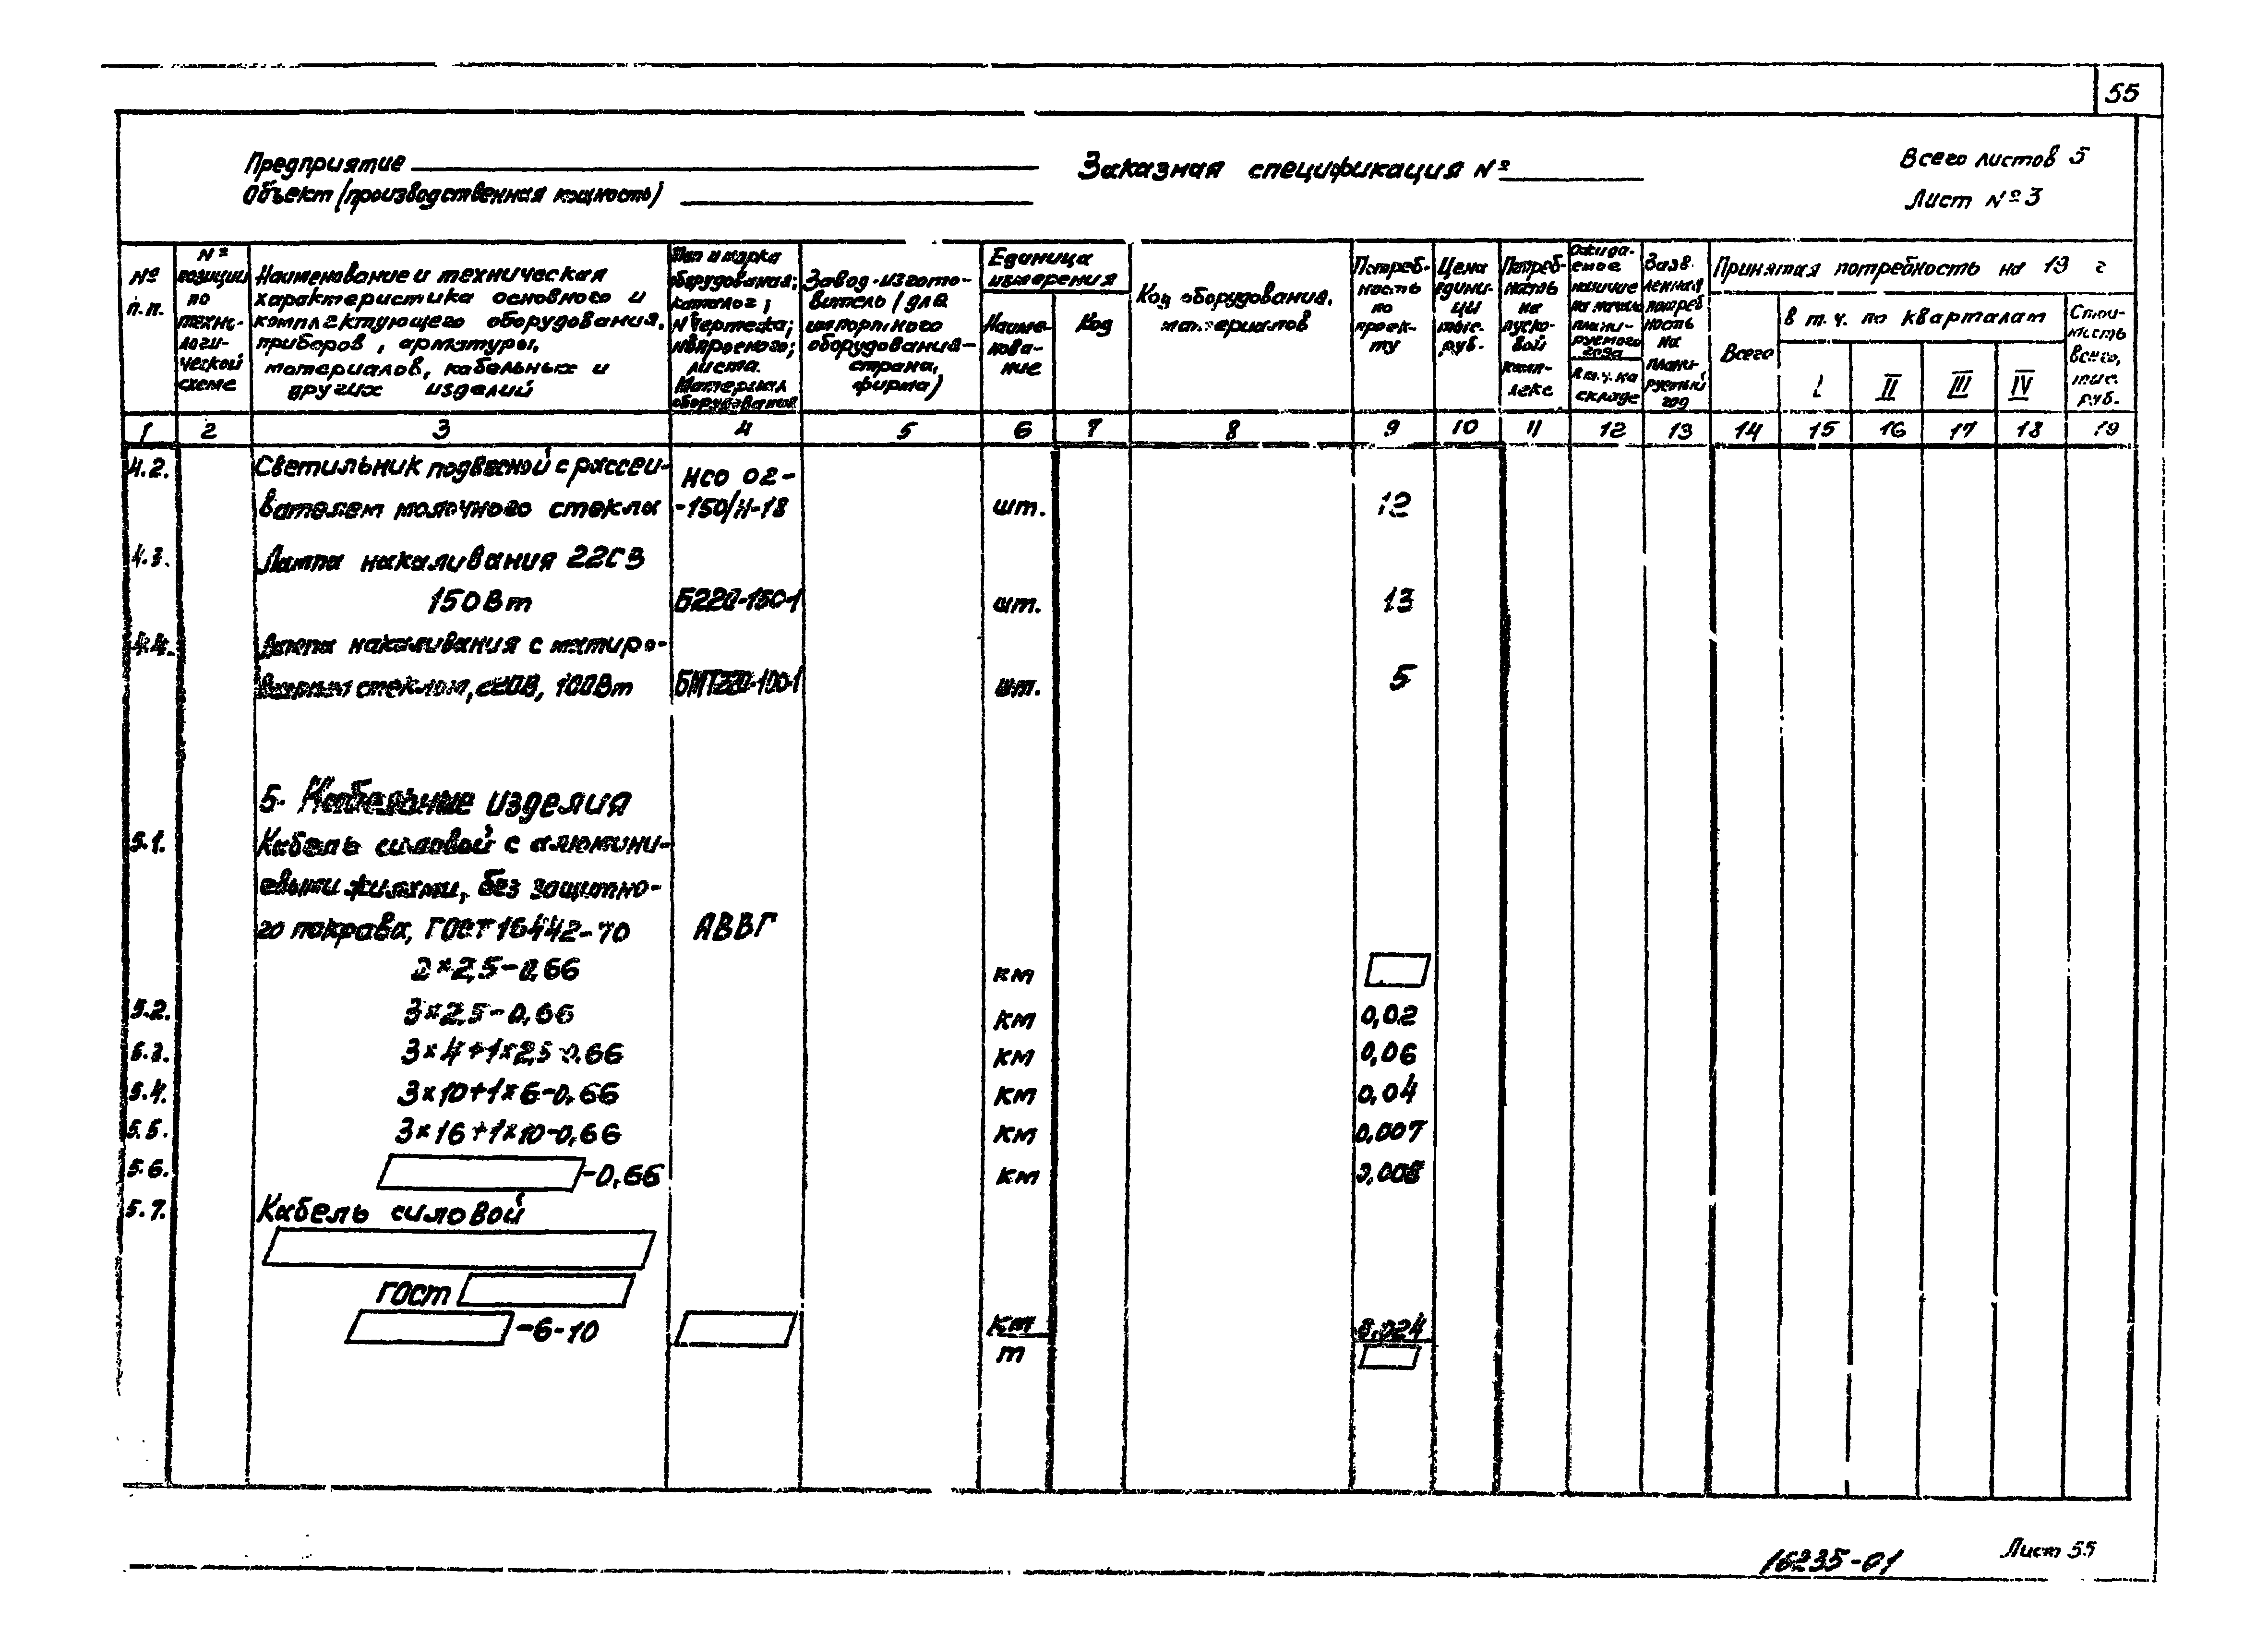 55
Предприятие
Объект (производственная мощность)
Заказная спецификация №
Всего листов 5
Лист №3
№ п.п.
№ позиции по техно-логи-ческой схеме
Наименование и техническая
характеристика основного и
комплектующего оборудования,
приборов, арматуры,
материалов, кабельных и
других изделий
Тип и марка
оборудования;
каталог;
№ чертежа;
№ опросного;
листа.
Материал
оборудования
Завод-изгото-
витель (для
импортного
оборудования-
страна,
фирма)
Единица
измерения
Наиме-
нова-
ние
Код
Код оборудования,
материалов
Потреб-
ность
по
проек-
ту
Цена
едини-
цы
тыс.
руб.
Потреб-
ность
на
пуско-
вой
комп-
лекс
Ожида-
емое
наличие
на начало
плани-
руемого
года
в т.ч. на
складе
Заяв-
ленная
потреб
ность
на
плани-
руемый
год
Принятая потребность на 19 г
Всего
в т.ч. по кварталам
I II III IV
Стои-
мость
всего,
тыс.
руб.
1 2 3 4 5 6 7 8 9 10 11 12 13 14 15 16 17 18 19
4.2. Светильник подвесной с рассеи- НСО 02-
вателем молочного стекла -150/Н-18 шт. 12
4.3. Лампа накаливания 220В
150Вт Б220-150-1 шт. 13
4.4. Лампа накаливания с матиро-
ванным стеклом, 220В, 100Вт БМТ220-100-1 шт. 5
5. Кабельные изделия
5.1. Кабель силовой с алюмини-
евыми жилами, без защитно-
го покрова, ГОСТ 16442-70 АВВГ
2×2,5-0,66 км
5.2. 3×2,5-0,66 км 0,02
5.3. 3×4+1×2,5-0,66 км 0,06
5.4. 3×10+1×6-0,66 км 0,04
5.5. 3×16+1×10-0,66 км 0,007
5.6. -0,66 км 0,008
5.7. Кабель силовой
ГОСТ
-6-10 км 0,024
т
16235-01
Лист 55